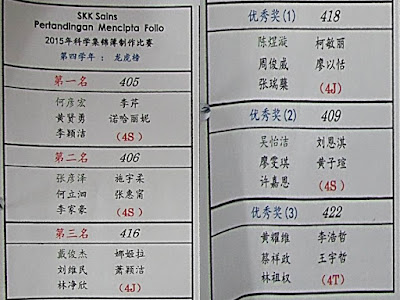 SKK Sains
Pertandingan Mencipta Folio
2015年科学集锦簿制作比赛
第四学年： 龙虎榜
第一名 405
何彦宏 李芹
黄贤勇 诺哈丽妮
李颖洁 (4S)
第二名 406
张彦泽 施宇柔
何立泗 张惠甯
李家豪 (4S)
第三名 416
戴俊杰 娜娅拉
刘维民 萧颖洁
林净欣 (4J)
优秀奖(1) 418
陈煜漩 柯敏丽
周俊威 廖以恬
张瑞蘩 (4J)
优秀奖(2) 409
吴怡洁 刘恩淇
廖雯琪 黄子瑄
许嘉恩 (4S)
优秀奖(3) 422
黄耀维 李浩哲
蔡祥政 王宇哲
林祖权 (4T)